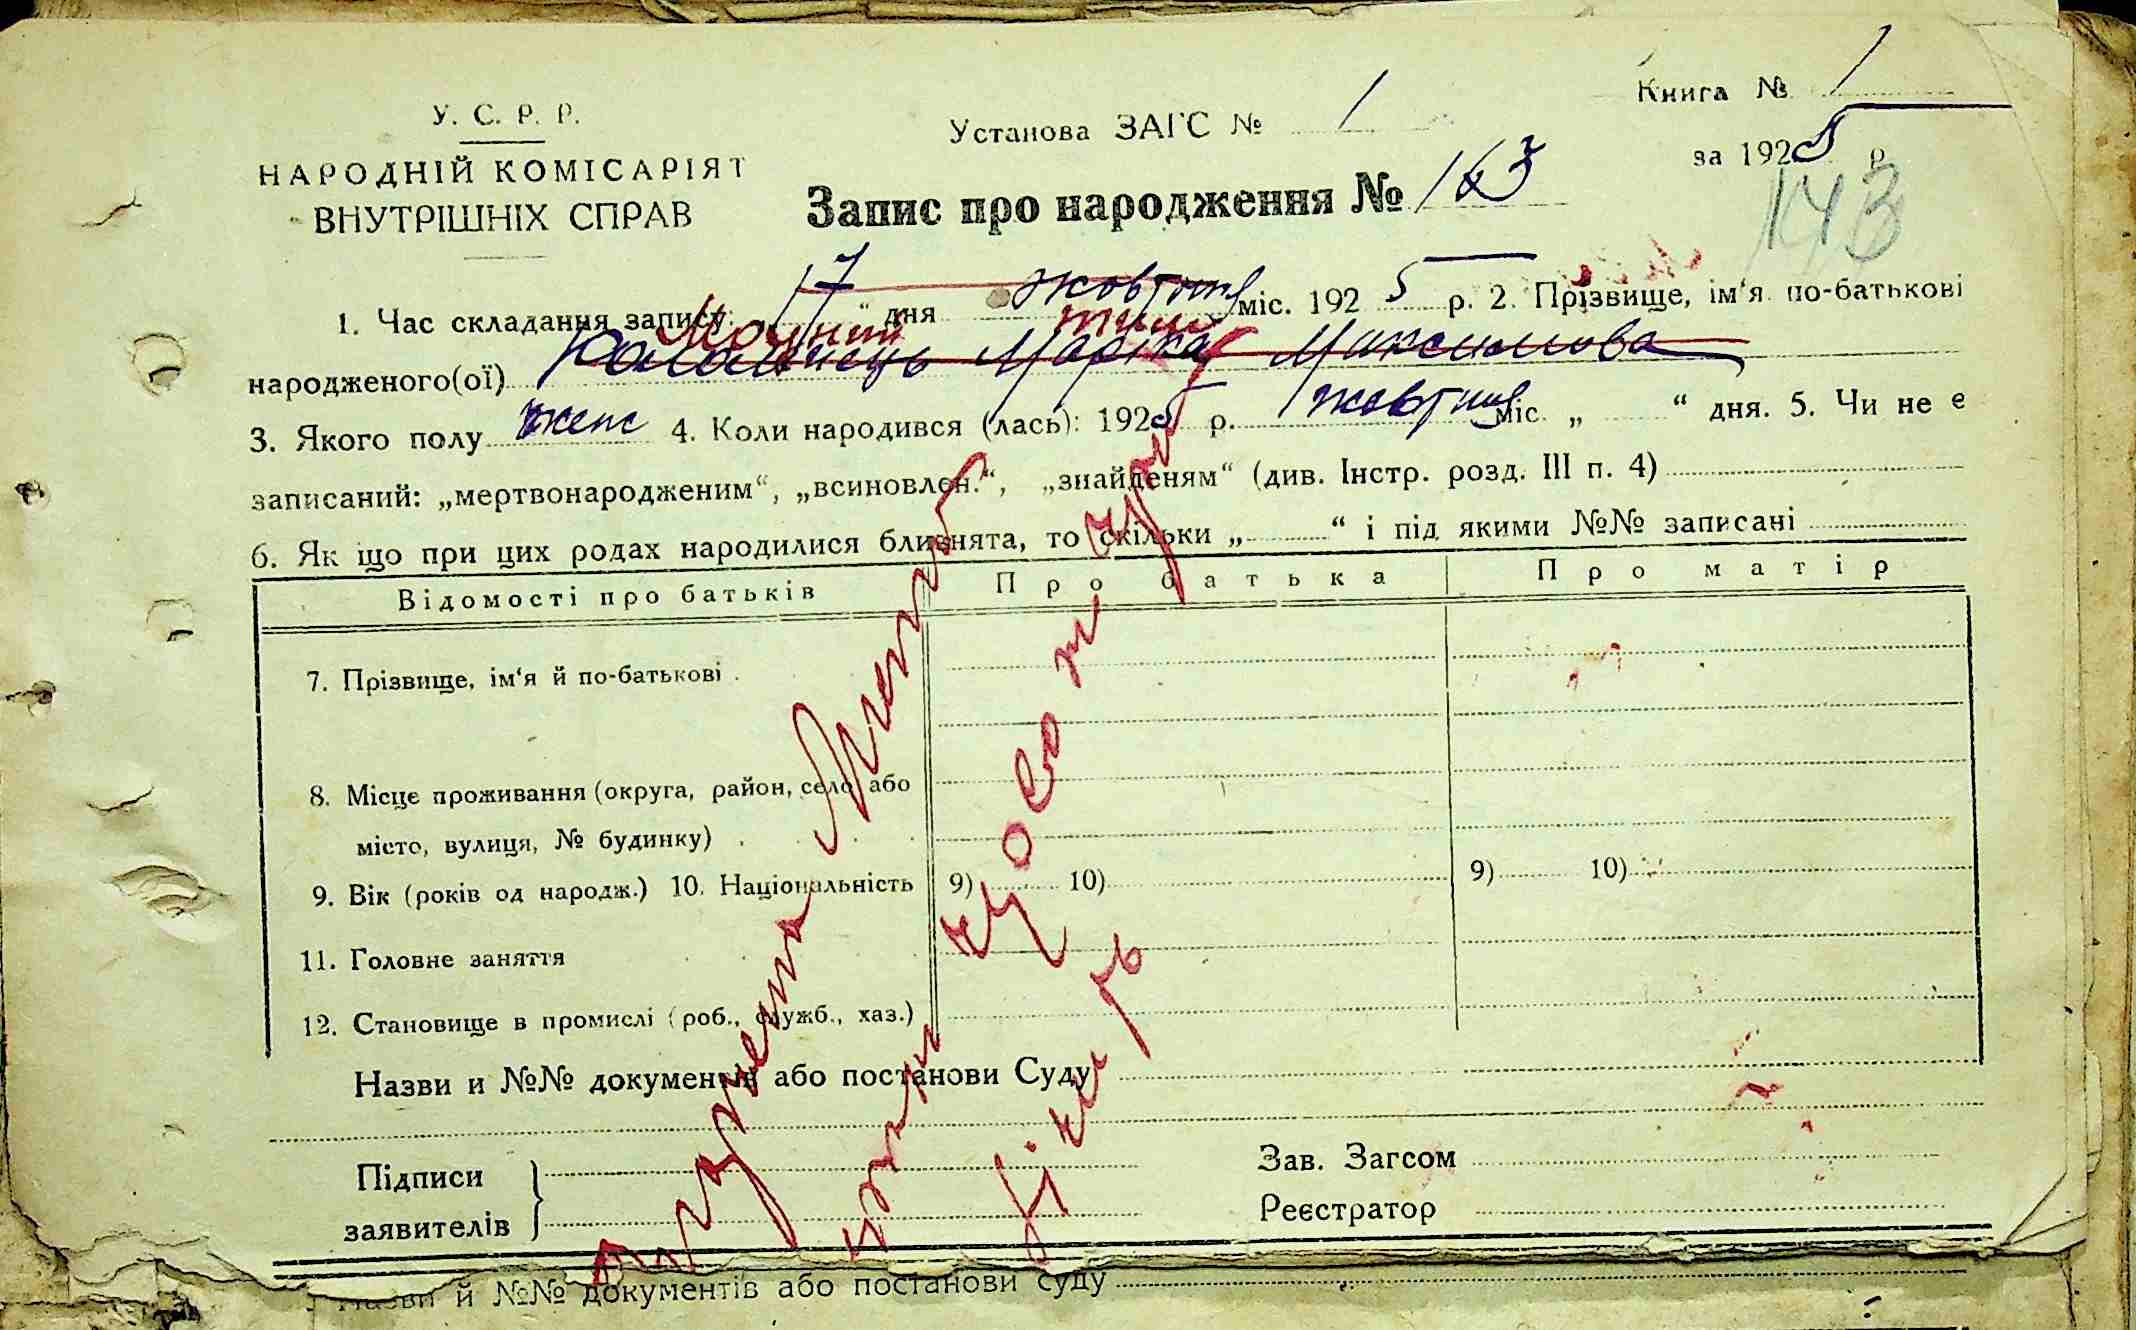 У. С. Р. Р.
НАРОДНІЙ КОМІСАРІЯТ
ВНУТРІШНІХ СПРАВ
Установа ЗАГС № 1
Книга № 1
за 1925 р.
Запис про народження № 163
143
1. Час складання запису: „17“ дня жовтня міс. 1925 р. 2. Прізвище, ім‘я по-батькові
народженого(ої) Марія Максимова
3. Якого полу жен 4. Коли народився (лась): 1925 р. жовтня міс. „ “ дня. 5. Чи не є
записаний: „мертвонародженим“, „всиновлен.“, „знайденям“ (див. Інстр. розд. III п. 4)
6. Як що при цих родах народилися близнята, то скільки „ “ і під якими №№ записані
Відомості про батьків Про батька Про матір
7. Прізвище, ім‘я й по-батькові
8. Місце проживання (округа, район, село або
місто, вулиця, № будинку)
9. Вік (років од народж.) 10. Національність 9) 10) 9) 10)
11. Головне заняття
12. Становище в промислі (роб., служб., хаз.)
Назви и №№ документів або постанови Суду
Підписи
заявителів
Зав. Загсом
Реєстратор
Назви й №№ документів або постанови суду